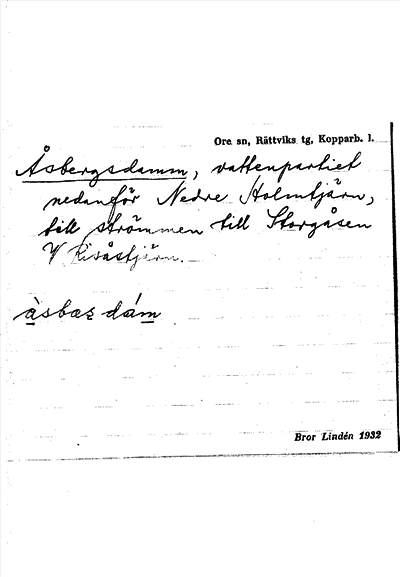 Ore sn, Rättviks tg, Kopparb. l.
Åsbergsdamm, vattenpartiet
nedanför Nedre Holmtjärn,
till strömmen till Storgåsen
V Risåstjärn.
àsbæs dám
Bror Lindén 1932